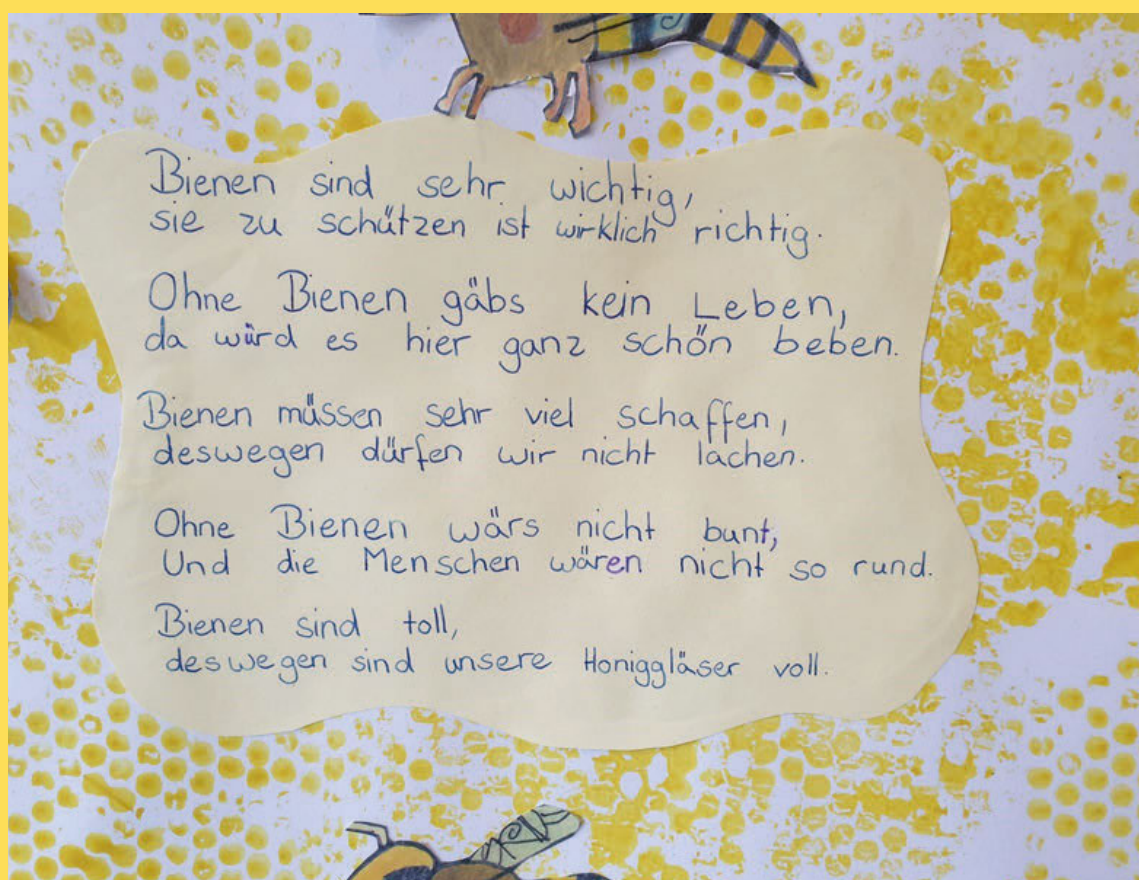 Bienen sind sehr wichtig,
sie zu schützen ist wirklich richtig.
Ohne Bienen gäbs kein Leben,
da würd es hier ganz schön beben.
Bienen müssen sehr viel schaffen,
deswegen dürfen wir nicht lachen.
Ohne Bienen wärs nicht bunt,
Und die Menschen wären nicht so rund.
Bienen sind toll,
deswegen sind unsere Honiggläser voll.